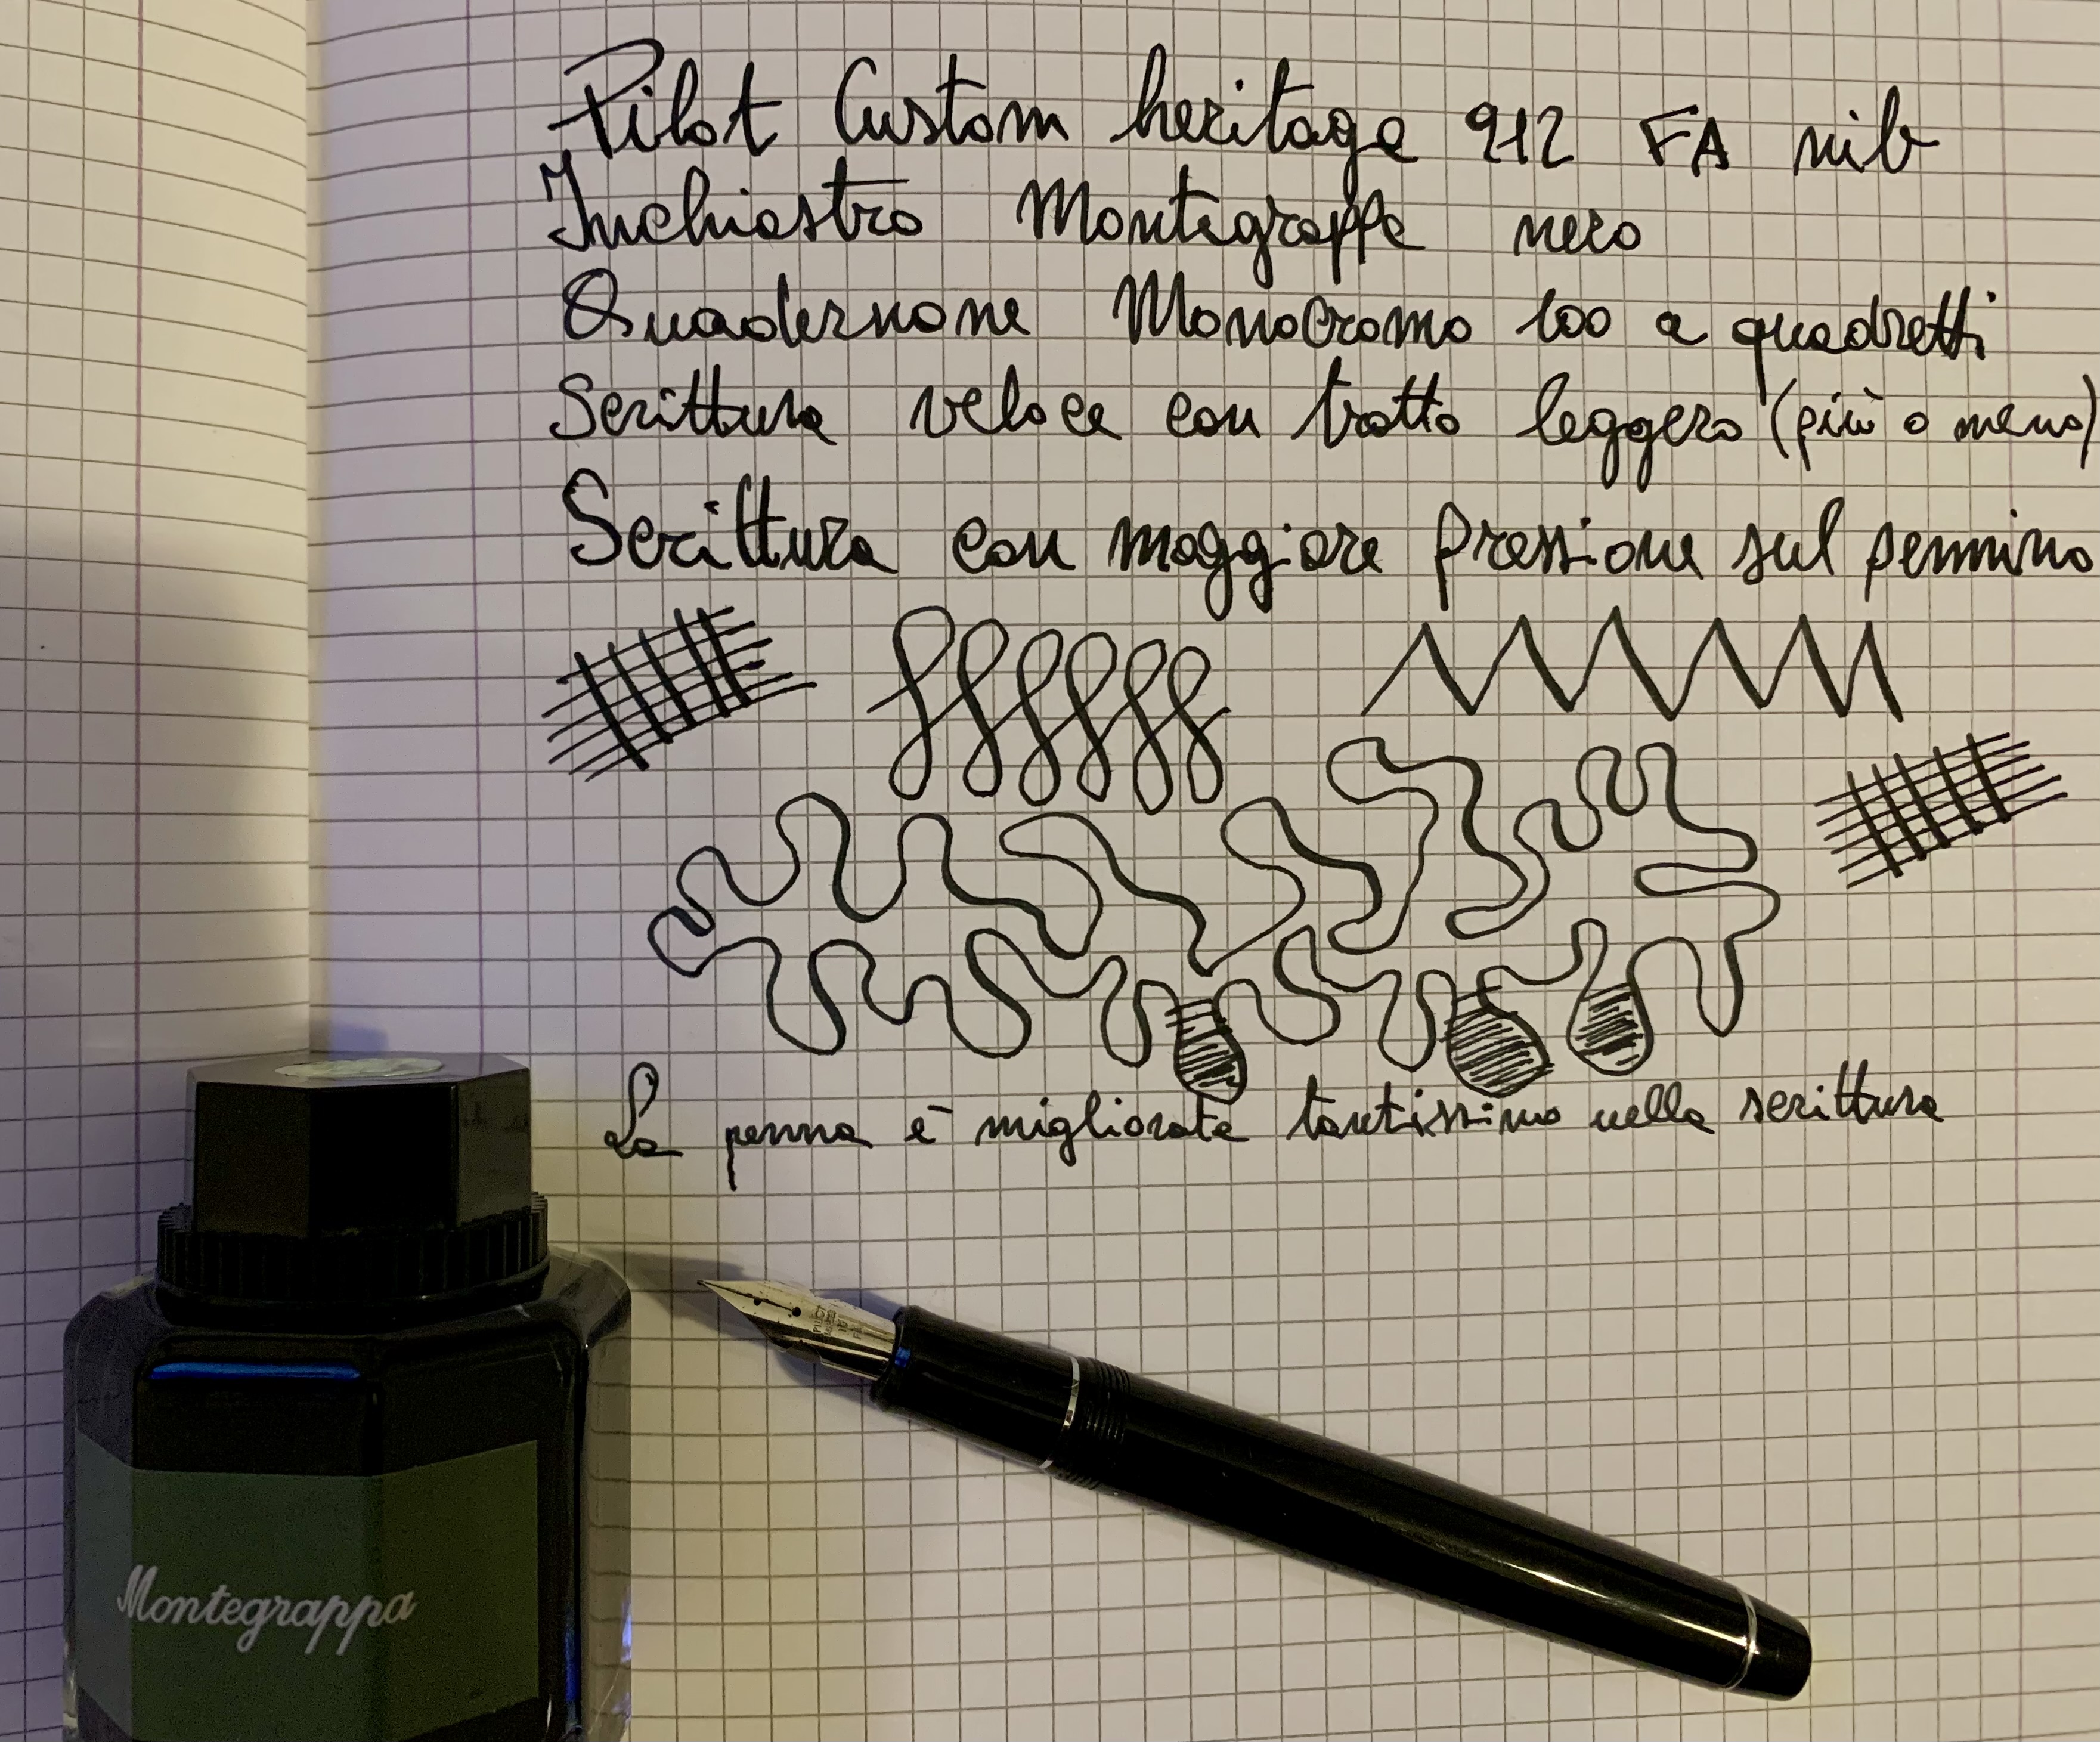 Pilot Custom heritage 912 FA nib
Inchiostro Montegrappa nero
Quadernone Monocromo 100 a quadretti
Scrittura veloce con tratto leggero (più o meno)
Scrittura con maggiore pressione sul pennino
La penna è migliorata tantissimo nella scrittura
Montegrappa